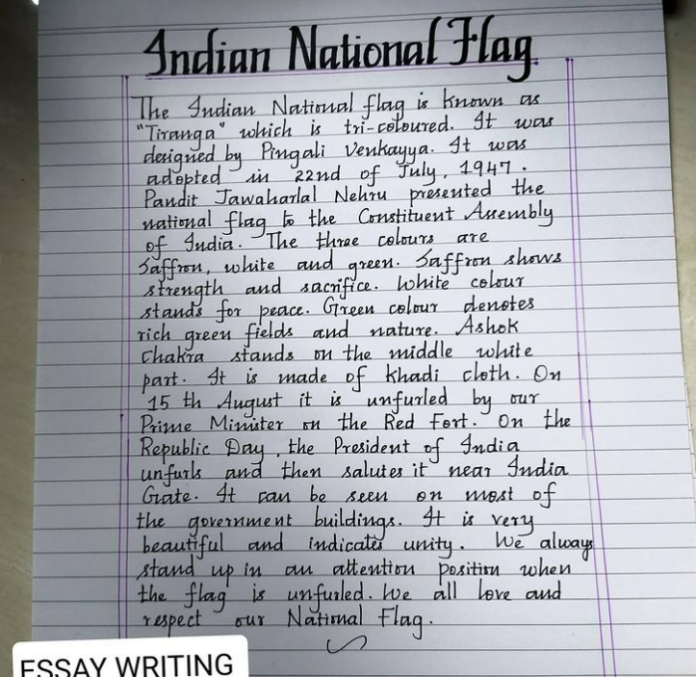 Indian National Flag
The Indian National flag is known as
"Tiranga" which is tri-coloured. It was
designed by Pingali Venkayya. It was
adopted in 22nd of July, 1947.
Pandit Jawaharlal Nehru presented the
national flag to the Constituent Assembly
of India. The three colours are
Saffron, white and green. Saffron shows
strength and sacrifice. White colour
stands for peace. Green colour denotes
rich green fields and nature. Ashok
Chakra stands on the middle white
part. It is made of khadi cloth. On
15 th August it is unfurled by our
Prime Minister on the Red Fort. On the
Republic Day, the President of India
unfurls and then salutes it near India
Gate. It can be seen on most of
the government buildings. It is very
beautiful and indicates unity. We always
stand up in an attention position when
the flag is unfurled. We all love and
respect our National Flag.
ESSAY WRITING